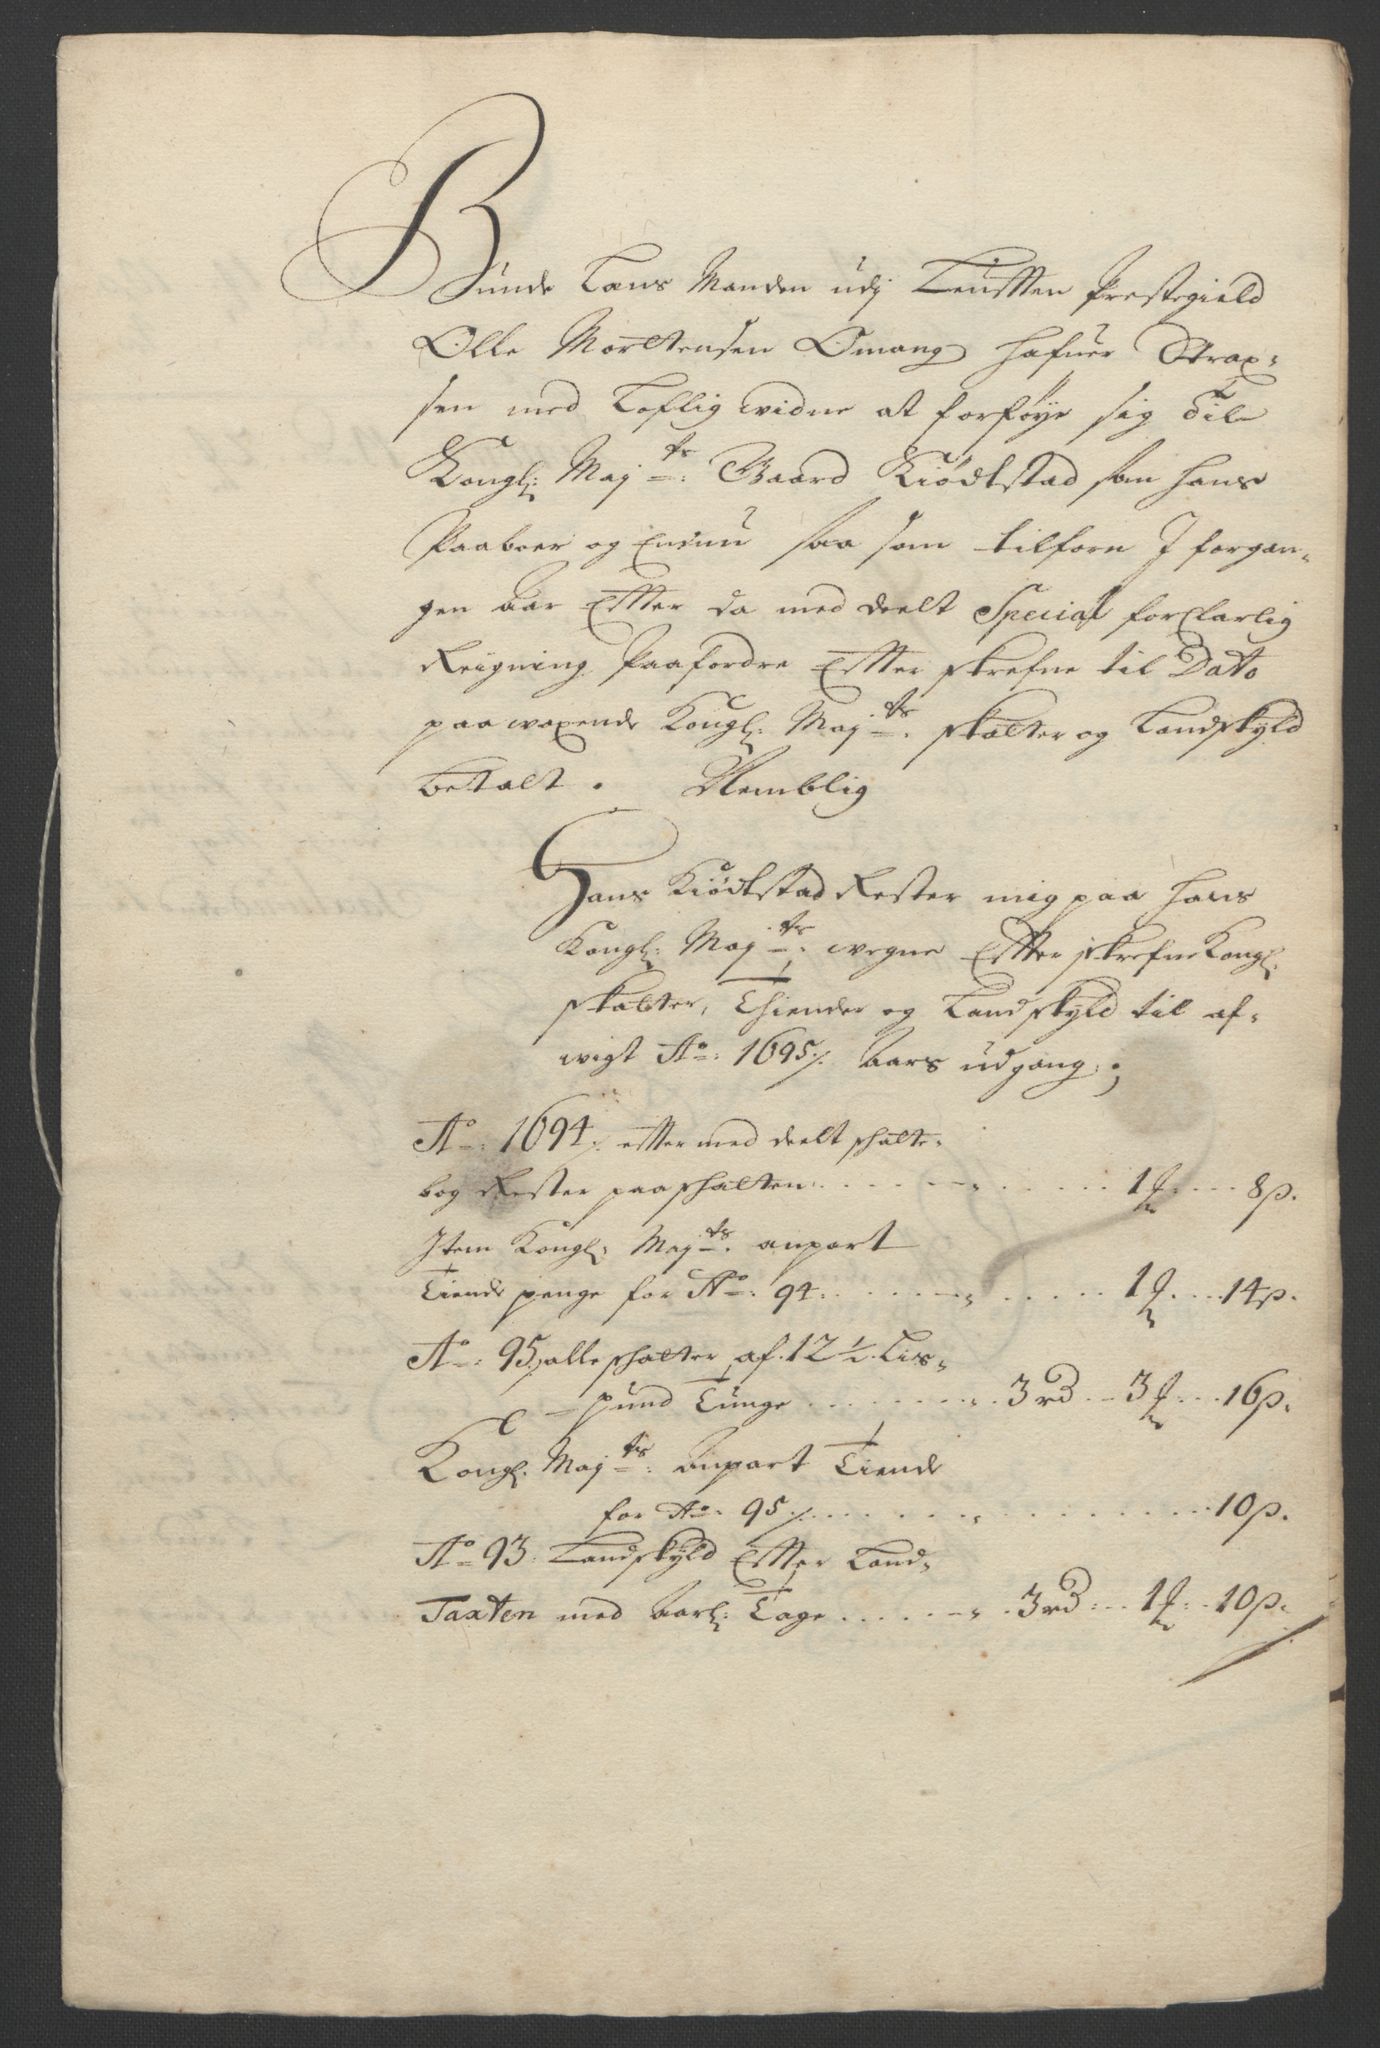 Bunde Lans Manden udj Leutten Prestegield
Olle Mortensen Omang hafuer Strax-
sen med Loflig widne at forføye sig til
Kongl: Maj:ts Gaard Kiødtstad som Hans
Paaboer og Endnu saa som tilforn J forgan-
gen Aar Efter da med deelt Special forklarlig
Reigning Paafordre Efter skrefne til Dato
paa woxende Kongl: Maj:ts skatter og Landskyld
betalt. Nemblig
Hans Kiødtstad Rester mig paa Hans
Kongl: Maj:ts wegne Efter skrefne Kongl:
skatter, Thiender og Landskyld til af-
wigt Ao: 1695/. Aars udgang:;
Ao: 1694/. efter med deelt schatte-
bog Rester paa schatten: 1 f 8 s.
Item Kongl: Maj:ts anpart
Tiende penge for Ao: 94: 1 f. 14 s.
Ao: 95/ alle schatter af 12 1/2 Lis-
pund Tunge 3 rd 3 f. 16 s.
Kongl: Maj:ts Anpart Tiende
for Ao: 95/. 10 s.
Ao 93: Landskyld Efter Land-
Taxten med Aarl: Tage 3 rd: 1 f: 10 s.